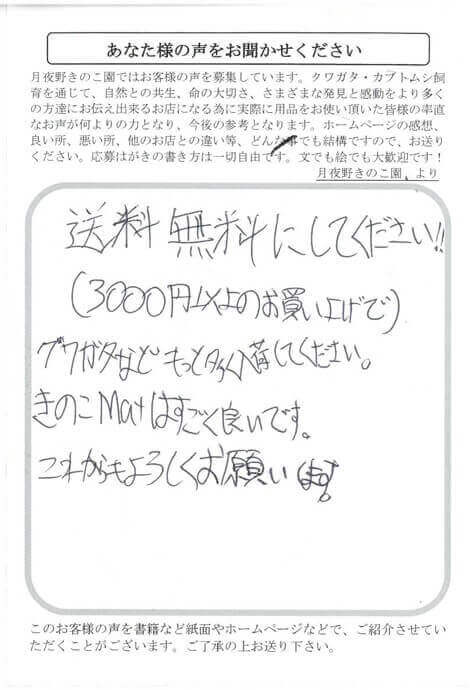 あなた様の声をお聞かせください
月夜野きのこ園ではお客様の声を募集しています。クワガタ・カブトムシ飼
育を通じて、自然との共生、命の大切さ、さまざまな発見と感動をより多く
の方達にお伝え出来るお店になる為に実際に用品をお使い頂いた皆様の率直
なお声が何よりの力となり、今後の参考となります。ホームページの感想、
良い所、悪い所、他のお店との違い等、どんな事でも結構ですので、お送り
ください。応募はがきの書き方は一切自由です。文でも絵でも大歓迎です！
月夜野きのこ園 より
送料無料にしてください!!
(3000円以上のお買い上げで)
グワガタなどもっと多く入荷してください。
きのこMatはすごく良いです。
これからもよろしくお願いします!
このお客様の声を書籍など紙面やホームページなどで、ご紹介させてい
ただくことがございます。ご了承の上お送り下さい。